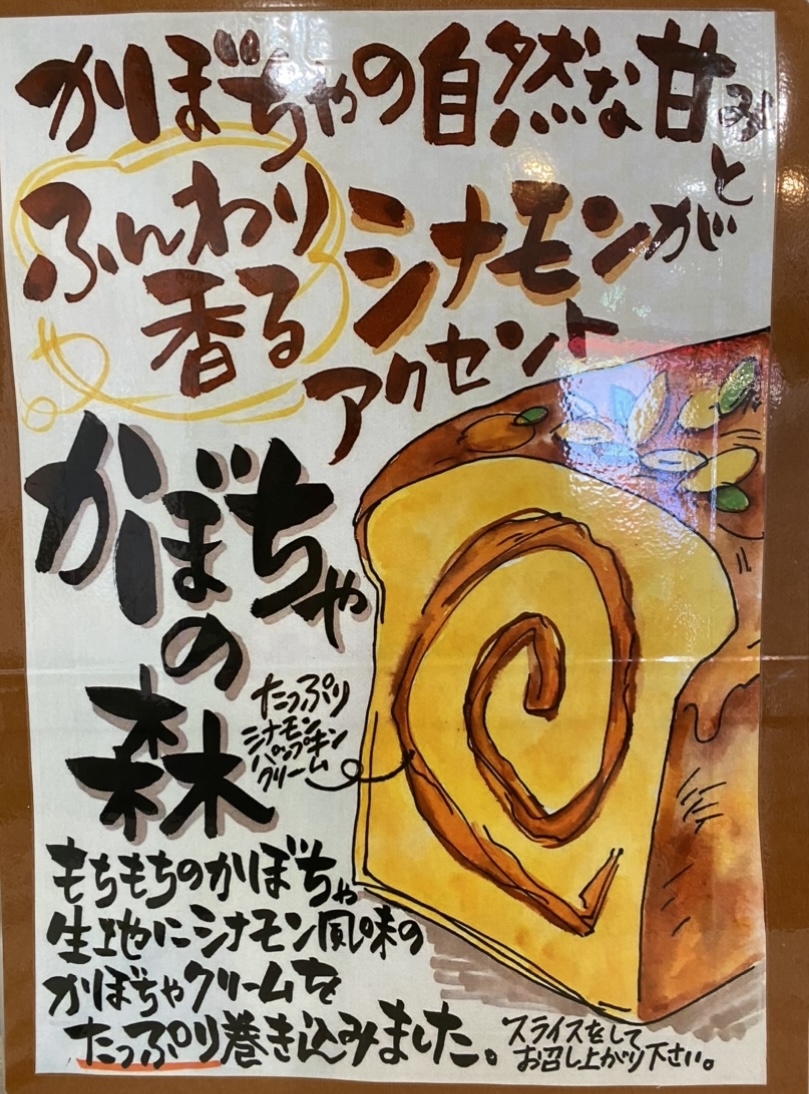 かぼちゃの自然な甘みと
ふんわり
香る
シナモンが
アクセント
かぼちゃ
の
森
たっぷり
シナモン
パンプキン
クリーム
もちもちのかぼちゃ
生地にシナモン風味の
かぼちゃクリームを
たっぷり巻き込みました。
スライスをして
お召し上がり下さい。